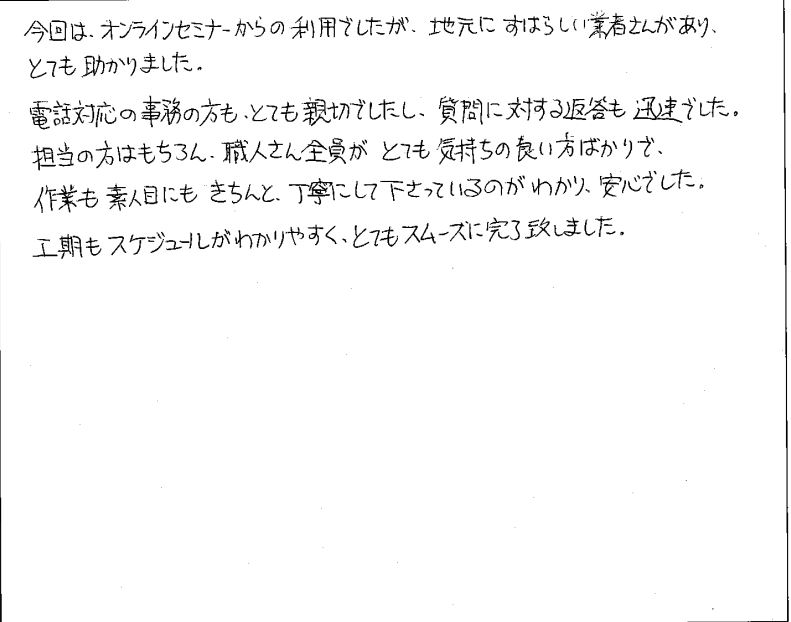 今回は、オンラインセミナーからの利用でしたが、地元にすばらしい業者さんがあり、
とても助かりました。
電話対応の事務の方も、とても親切でしたし、質問に対する返答も迅速でした。
担当の方はもちろん、職人さん全員がとても気持ちの良い方ばかりで、
作業も素人目にもきちんと、丁寧にして下さっているのがわかり、安心でした。
工期もスケジュールがわかりやすく、とてもスムーズに完了致しました。